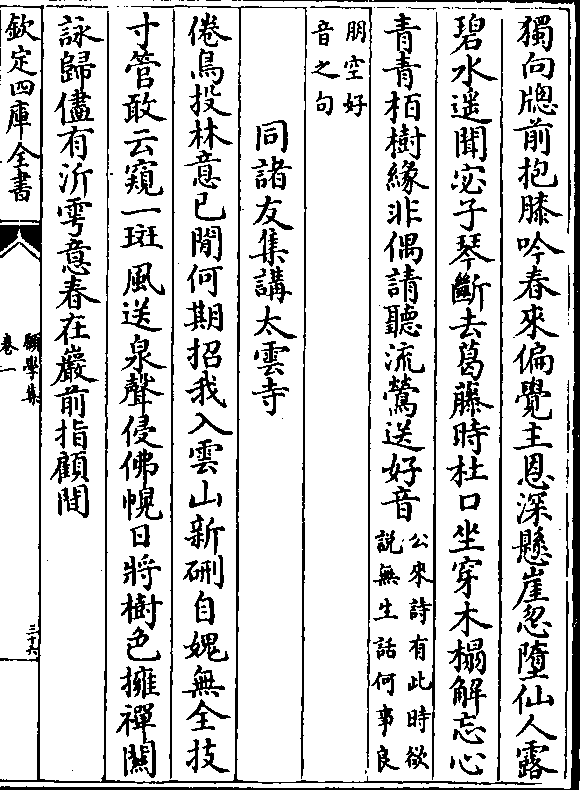 獨向牎前抱膝吟春來偏覺主恩深懸崖忽墮仙人露
碧水遥聞宓子琴斷去葛藤時杜口坐穿木榻解忘心
青青栢樹緣非偶請聽流鶯送好音公來詩有此時欲
說無生話何事良
朋空好
音之句
同諸友集講太雲寺
倦鳥投林意已閒何期招我入雲山新硎自媿無全技
寸管敢云窺一斑風送泉聲侵佛幌日將樹色擁禪關
詠歸儘有沂雩意春在巖前指顧間
欽定四庫全書
願學集
卷一
三十六